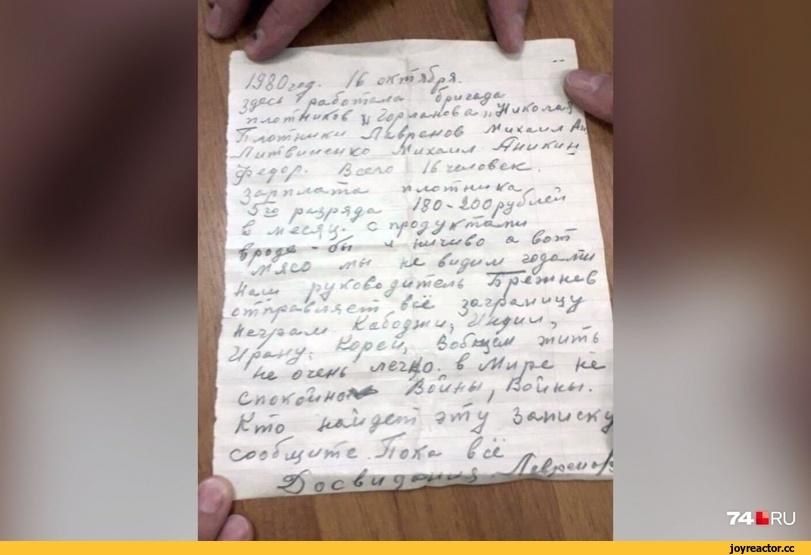 1980 год. 16 октября.
здесь работала бригада
плотников "Горланова" Николая
Плотники Лавранов Михаил
Литвиненко Михаил Аникин
Федор. Всего 16 человек.
Зарплата плотника
5го разряда 180-200 рублей
в месяц. с продуктами
вроде-бы и ничиво а вот
мясо мы не видим годами
Наш руководитель Брежнев
отправляет всё заграницу
неграм Кабоджи, Индии,
Ирану. Кореи, Вобщем жить
не очень легко. в Мире не
спокойно Войны, Войны.
Кто найдет эту Записку
сообщите. Пока всё
Досвидания.
74 RU
joyreactor.cc